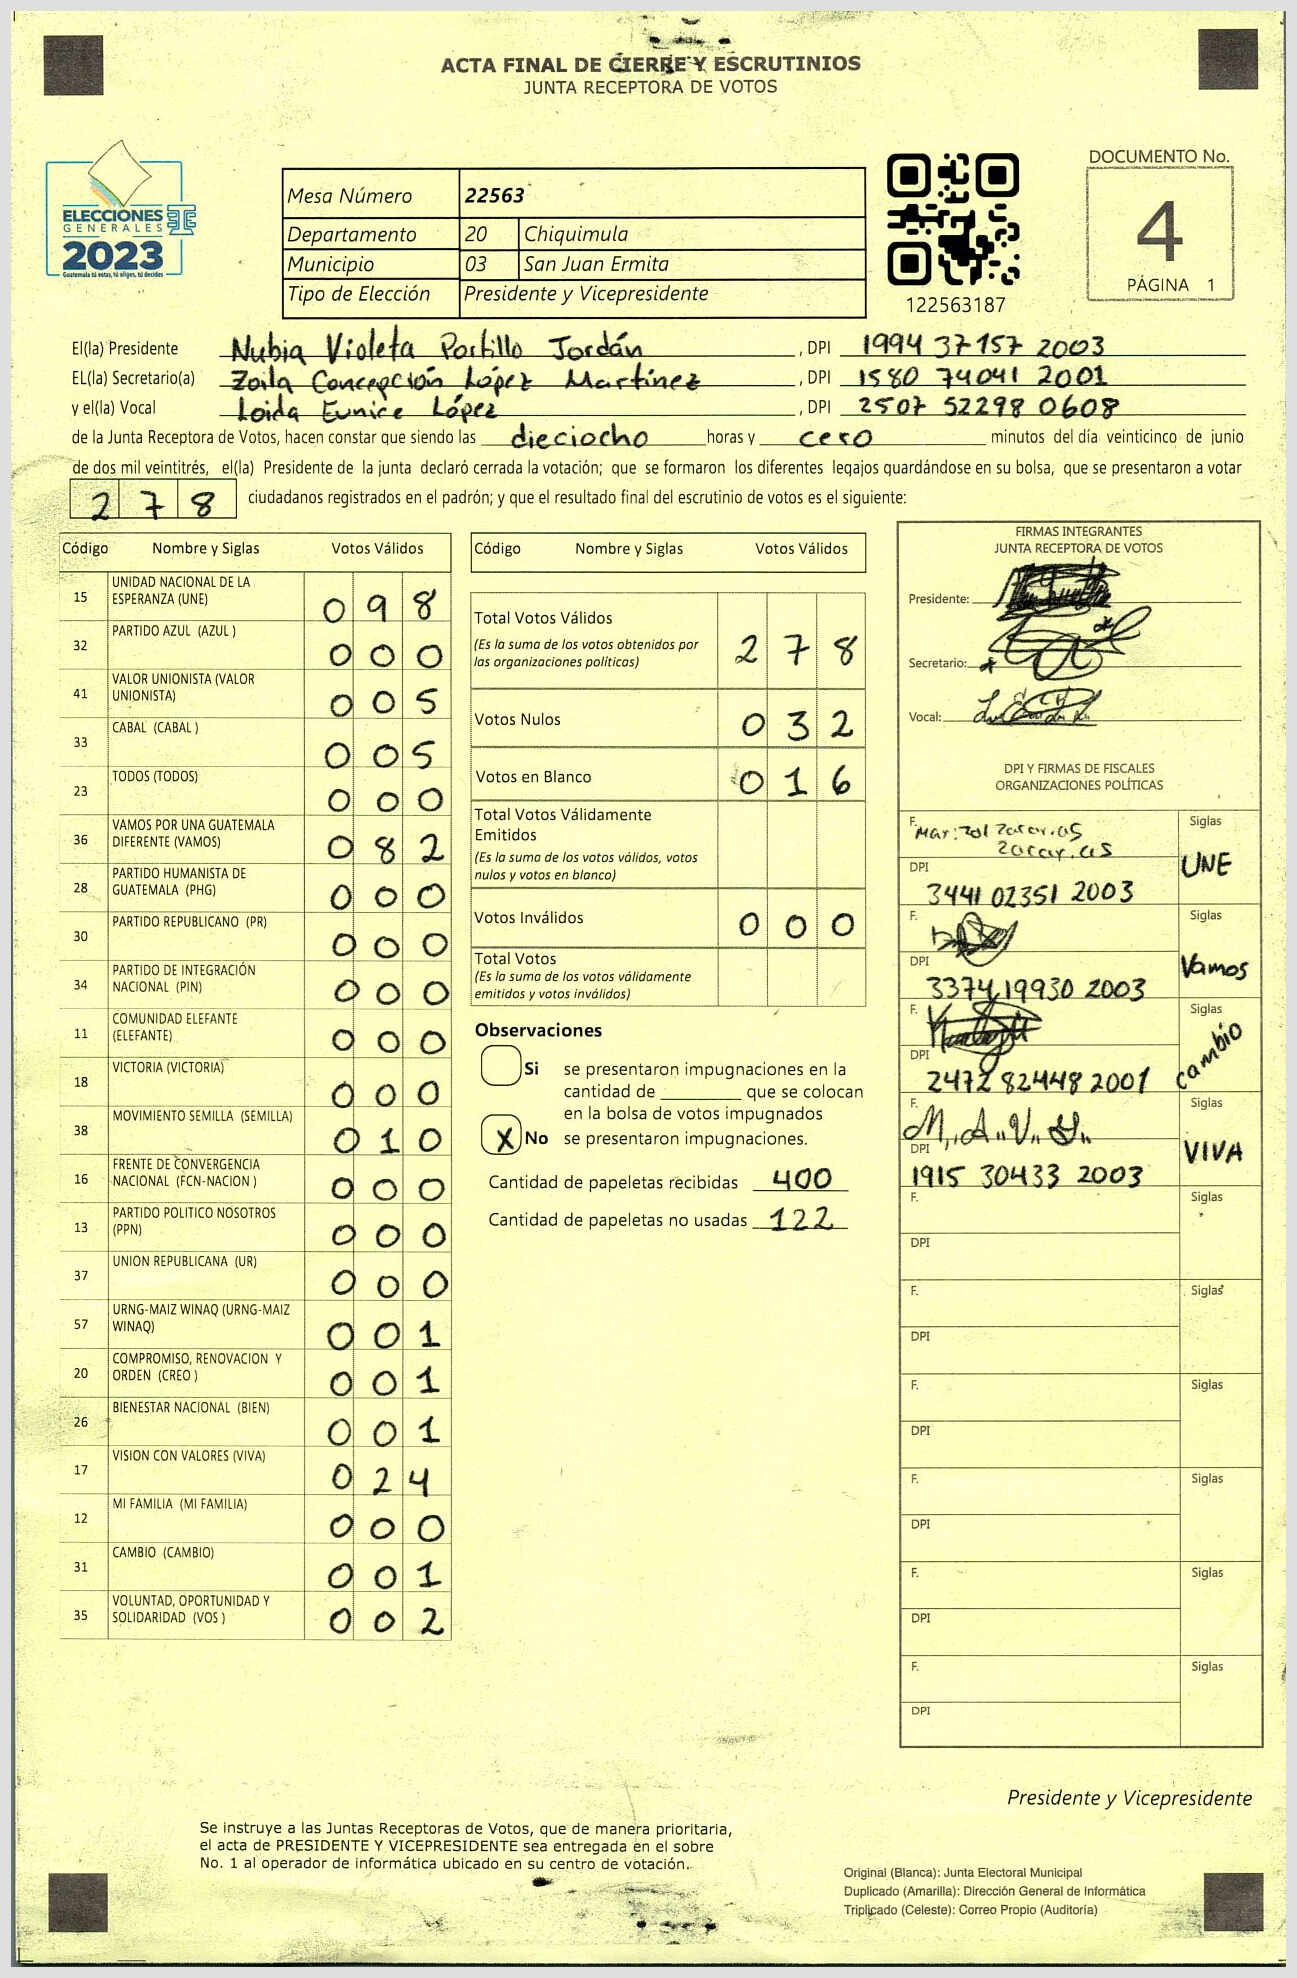 ACTA FINAL DE CIERRE Y ESCRUTINIOS
JUNTA RECEPTORA DE VOTOS
ELECCIONES
GENERALES
2023
Guatemala tú votas, tú eliges, tú decides
Mesa Número 22563
Departamento 20 Chiquimula
Municipio 03 San Juan Ermita
Tipo de Elección Presidente y Vicepresidente
122563187
DOCUMENTO No.
4
PÁGINA 1
El(la) Presidente Nubia Violeta Portillo Jordán , DPI 1994 37157 2003
EL(la) Secretario(a) Zoila Concepción López Martínez , DPI 1580 74041 2001
y el(la) Vocal Loida Eunice López , DPI 2507 52298 0608
de la Junta Receptora de Votos, hacen constar que siendo las dieciocho horas y cero minutos del día veinticinco de junio
de dos mil veintitrés, el(la) Presidente de la junta declaró cerrada la votación; que se formaron los diferentes legajos guardándose en su bolsa, que se presentaron a votar
278 ciudadanos registrados en el padrón; y que el resultado final del escrutinio de votos es el siguiente:
Código Nombre y Siglas Votos Válidos
15 UNIDAD NACIONAL DE LA ESPERANZA (UNE) 098
32 PARTIDO AZUL (AZUL ) 000
41 VALOR UNIONISTA (VALOR UNIONISTA) 005
33 CABAL (CABAL ) 005
23 TODOS (TODOS) 000
36 VAMOS POR UNA GUATEMALA DIFERENTE (VAMOS) 082
28 PARTIDO HUMANISTA DE GUATEMALA (PHG) 000
30 PARTIDO REPUBLICANO (PR) 000
34 PARTIDO DE INTEGRACIÓN NACIONAL (PIN) 000
11 COMUNIDAD ELEFANTE (ELEFANTE) 000
18 VICTORIA (VICTORIA) 000
38 MOVIMIENTO SEMILLA (SEMILLA) 010
16 FRENTE DE CONVERGENCIA NACIONAL (FCN-NACION ) 000
13 PARTIDO POLITICO NOSOTROS (PPN) 000
37 UNION REPUBLICANA (UR) 000
57 URNG-MAIZ WINAQ (URNG-MAIZ WINAQ) 001
20 COMPROMISO, RENOVACION Y ORDEN (CREO ) 001
26 BIENESTAR NACIONAL (BIEN) 001
17 VISION CON VALORES (VIVA) 024
12 MI FAMILIA (MI FAMILIA) 000
31 CAMBIO (CAMBIO) 001
35 VOLUNTAD, OPORTUNIDAD Y SOLIDARIDAD (VOS ) 002
Código Nombre y Siglas Votos Válidos
Total Votos Válidos 278
(Es la suma de los votos obtenidos por
las organizaciones políticas)
Votos Nulos 032
Votos en Blanco 016
Total Votos Válidamente
Emitidos
(Es la suma de los votos válidos, votos
nulos y votos en blanco)
Votos Inválidos 000
Total Votos
(Es la suma de los votos válidamente
emitidos y votos inválidos)
Observaciones
Si se presentaron impugnaciones en la
cantidad de ________ que se colocan
en la bolsa de votos impugnados
X No se presentaron impugnaciones.
Cantidad de papeletas recibidas 400
Cantidad de papeletas no usadas 122
FIRMAS INTEGRANTES
JUNTA RECEPTORA DE VOTOS
Presidente:
Secretario:
Vocal:
DPI Y FIRMAS DE FISCALES
ORGANIZACIONES POLÍTICAS
F. Siglas
DPI 3441 02351 2003 UNE
F. Siglas
DPI 3374 19930 2003 Vamos
F. Siglas
DPI 2472 82448 2001 cambio
F. M. A. V. Siglas
DPI 1915 30433 2003 VIVA
F. Siglas
DPI
F. Siglas
DPI
F. Siglas
DPI
F. Siglas
DPI
F. Siglas
DPI
F. Siglas
DPI
Presidente y Vicepresidente
Se instruye a las Juntas Receptoras de Votos, que de manera prioritaria,
el acta de PRESIDENTE Y VICEPRESIDENTE sea entregada en el sobre
No. 1 al operador de informática ubicado en su centro de votación.
Original (Blanca): Junta Electoral Municipal
Duplicado (Amarilla): Dirección General de Informática
Triplicado (Celeste): Correo Propio (Auditoría)